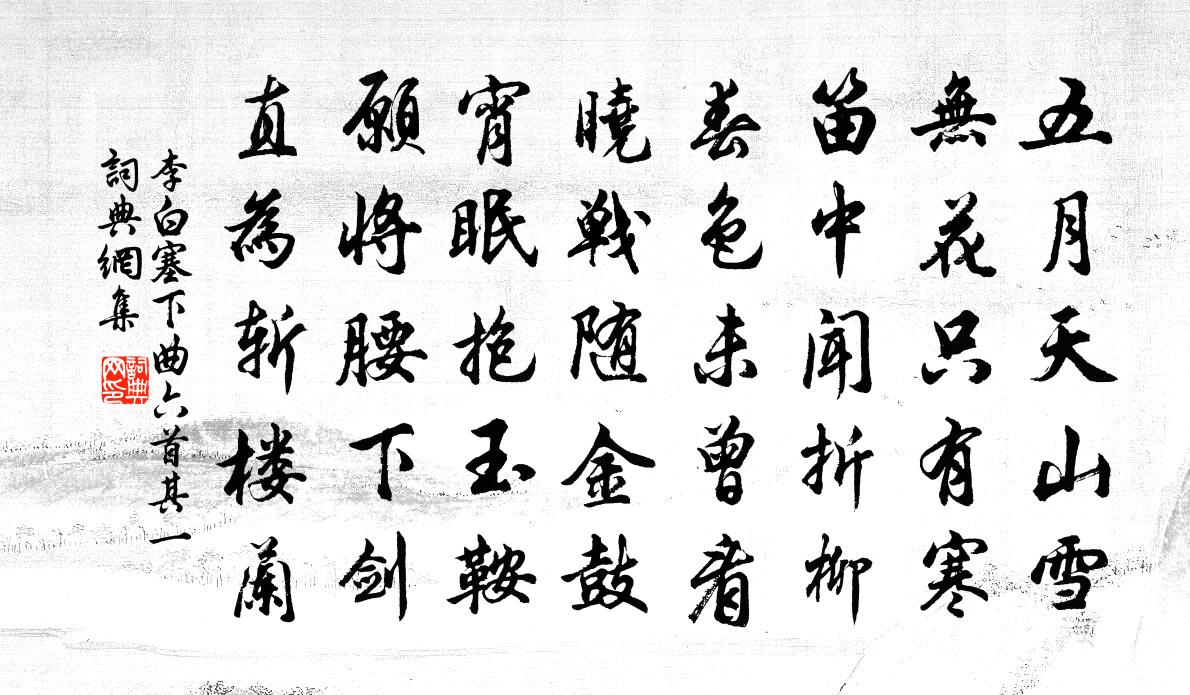 五月天山雪
無花只有寒
笛中聞折柳
春色未曾看
曉戦随金鼓
宵眠抱玉鞍
願將腰下剑
直為斬楼蘭
李白塞下曲六首其一
詞典網集
詞典
网印